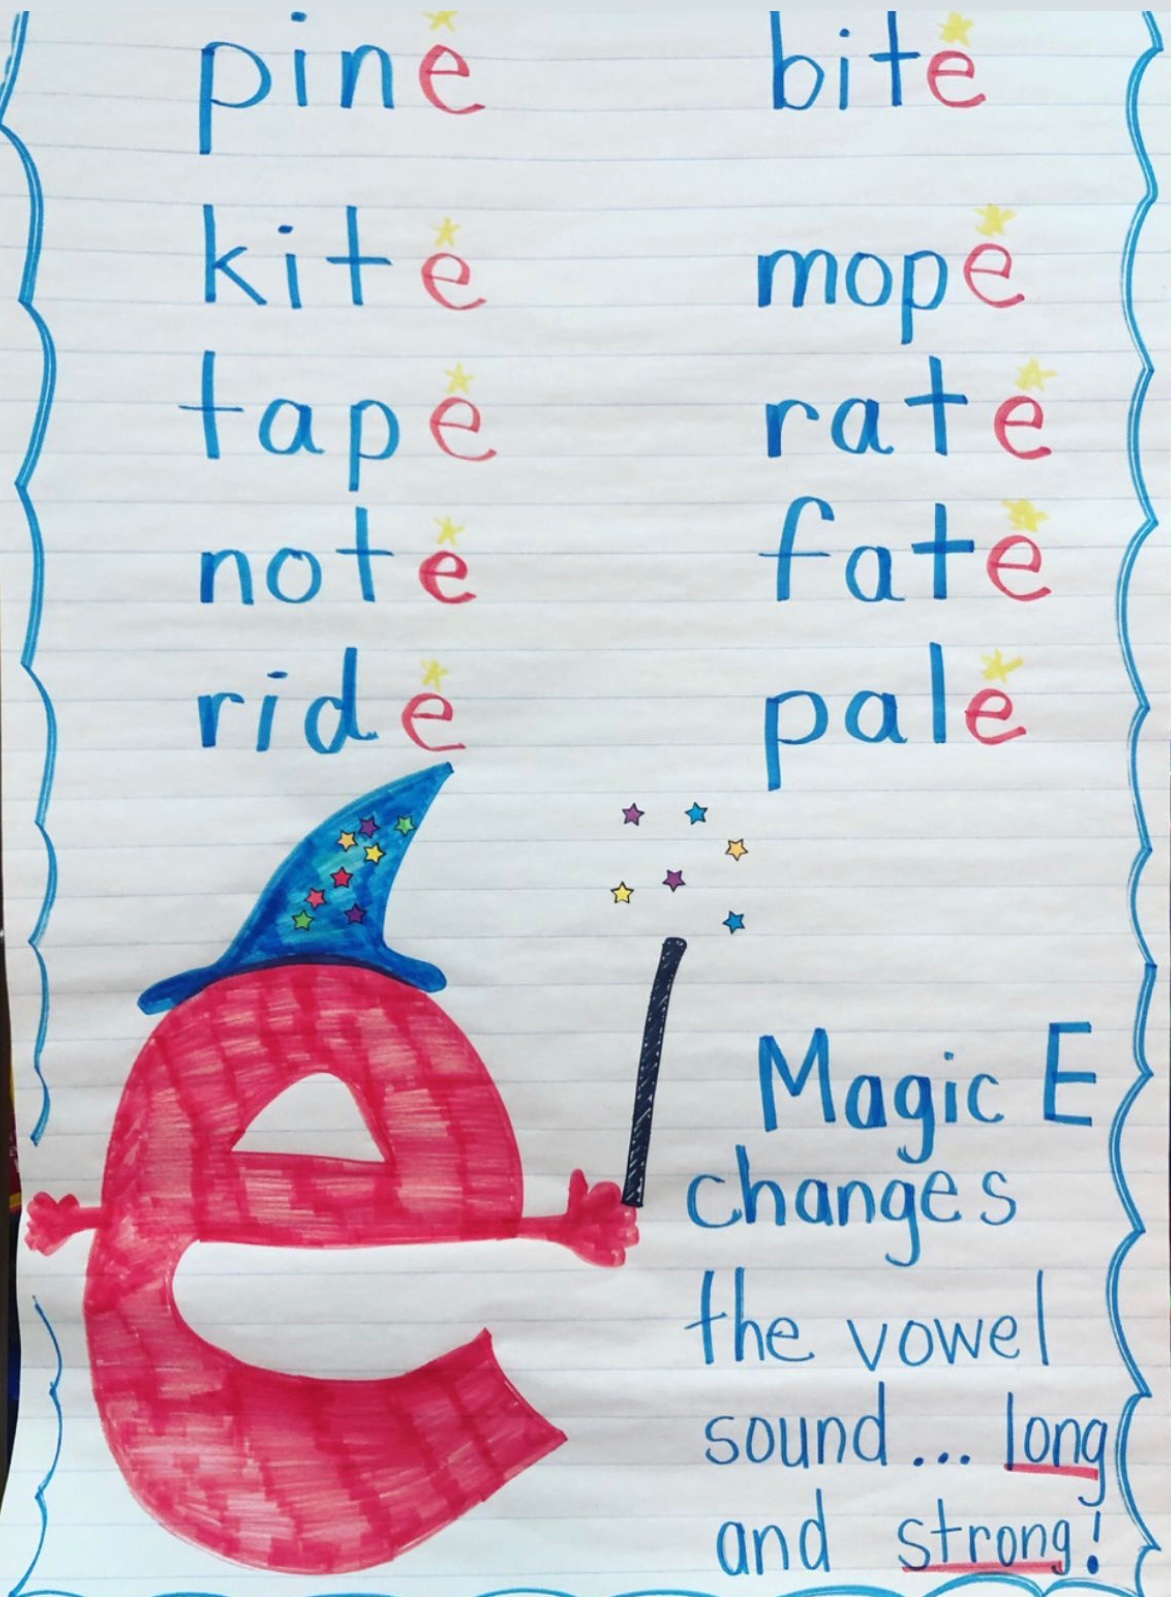 pine bite
kite mope
tape rate
note fate
ride pale
Magic E
changes
the vowel
sound... long
and strong!